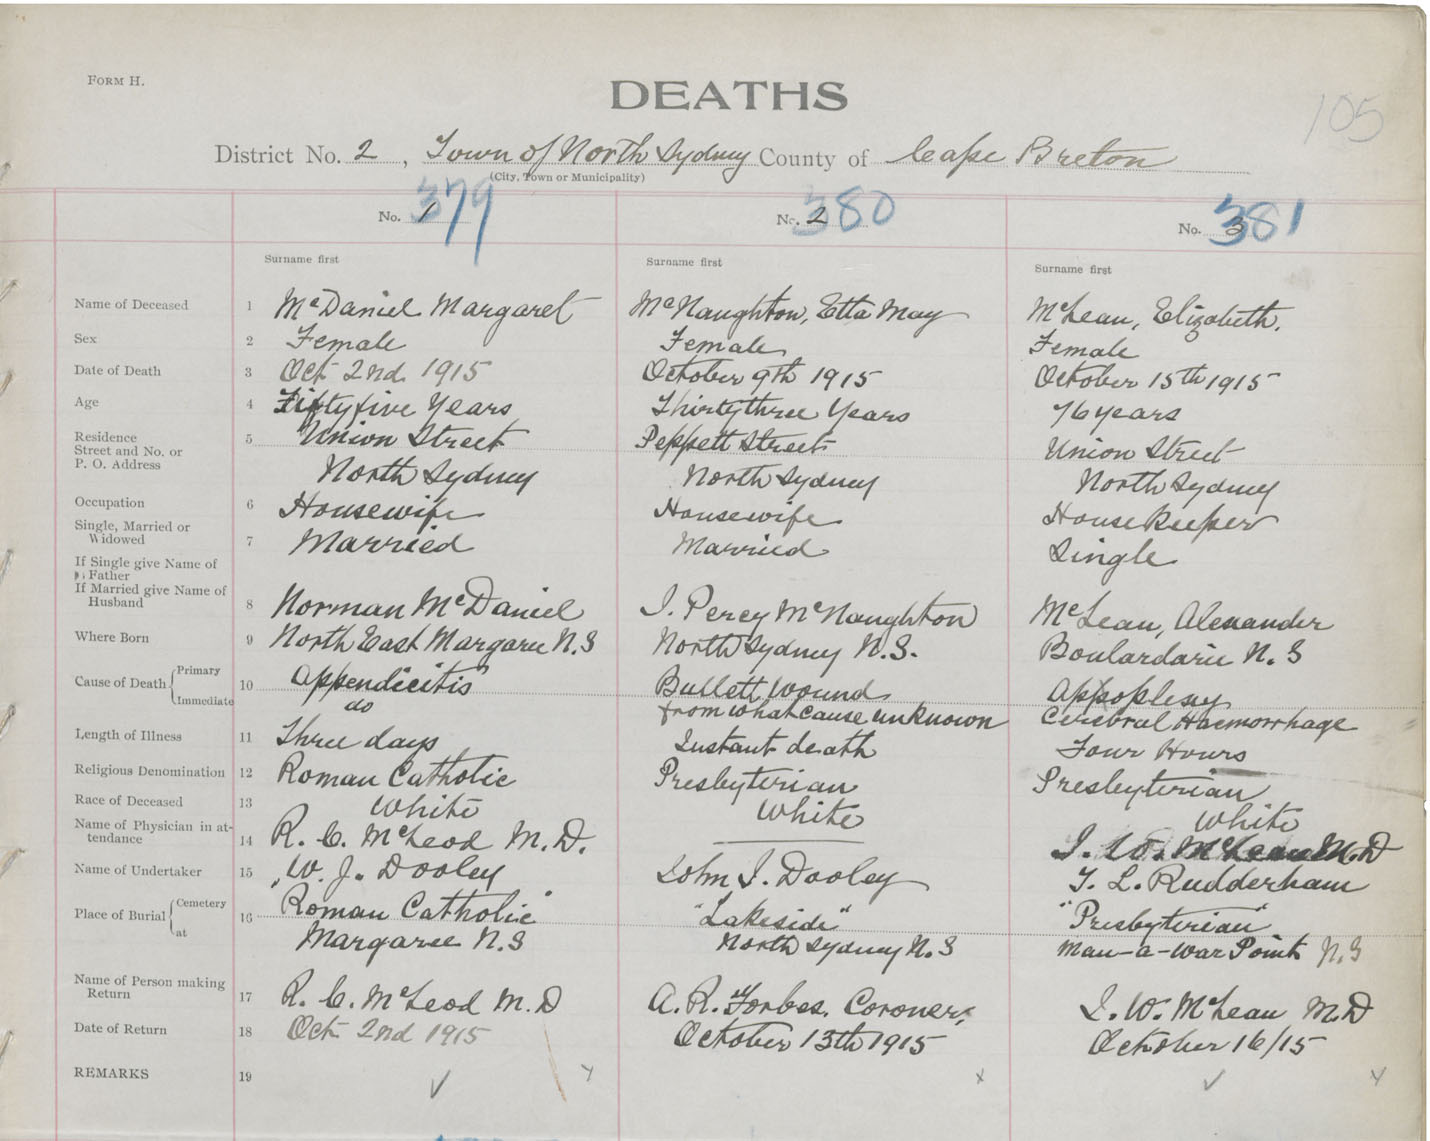 FORM H.
DEATHS
105
District No. 2, Town of North Sydney County of Cape Breton
(City, Town or Municipality)
No. 1 379 No. 2 380 No. 3 381
Surname first Surname first Surname first
Name of Deceased 1 McDaniel Margaret McNaughton, Etta May McLean, Elizabeth.
Sex 2 Female Female Female
Date of Death 3 Oct 2nd 1915 October 9th 1915 October 15th 1915
Age 4 Fiftyfive Years Thirtythree Years 76 years
Residence
Street and No. or
P. O. Address 5 Union Street Peppett Street Union Street
North Sydney North Sydney North Sydney
Occupation 6 Housewife Housewife Housekeeper
Single, Married or
Widowed 7 Married Married Single
If Single give Name of
Father
If Married give Name of
Husband 8 Norman McDaniel I. Percy McNaughton McLean, Alexander
Where Born 9 North East Margaree N.S North Sydney N.S. Boulardarie N.S
Cause of Death Primary 10 Appendicitis Bullett wound Appoplexy
Immediate do from what cause unknown Cerebral Haemorrhage
Length of Illness 11 Three days Instant death Four Hours
Religious Denomination 12 Roman Catholic Presbyterian Presbyterian
Race of Deceased 13 White White White
Name of Physician in at-
tendance 14 R. C. McLeod M.D. I. W. McLean M.D
Name of Undertaker 15 W. J. Dooley John J. Dooley T. L. Rudderham
Place of Burial Cemetery 16 Roman Catholic "Lakeside" "Presbyterian"
at Margaree N.S North Sydney N.S Man-a-war Point N.S
Name of Person making
Return 17 R. C. McLeod M.D A. R. Forbes, Coroner. I. W. McLean M.D
Date of Return 18 Oct 2nd 1915 October 13th 1915 October 16/15
REMARKS 19